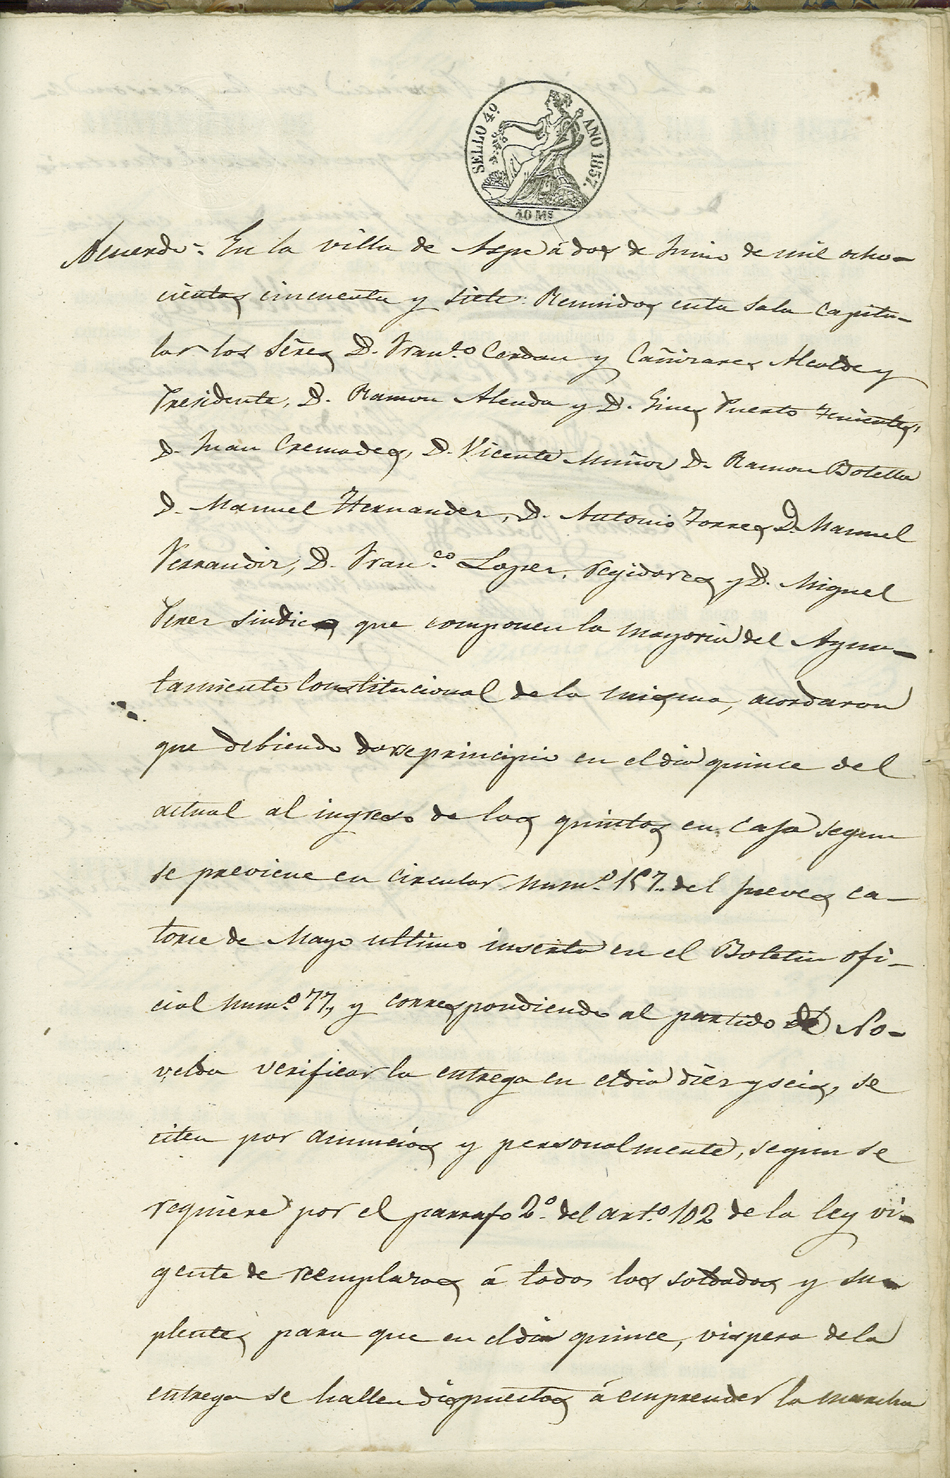 SELLO 4º AÑO 1857.
40 Ms
Acuerdo = En la villa de Aspe á dos de Junio de mil ocho-
cientos cincuenta y siete: Reunidos en la Sala Capitu-
lar los Sres D. Franco Cerdan y Cañizares Alcalde y
Presidente, D. Ramon Alenda y D. Gines Puerto Tenientes,
D. Juan Cremades, D. Vicente Muñoz D. Ramon Botella
D. Manuel Hernandez, D. Antonio Torres, D. Manuel
Ferrandiz, D. Franco Lopez, regidores y D. Miguel
Perez sindico que componen la mayoria del Ayun-
tamiento Constitucional de la misma, acordaron
que debiendo darse principio en el dia quince del
actual al ingreso de los quintos en caja segun
se previene en circular numo 157. del jueves ca-
torce de Mayo ultimo inserta en el Boletin ofi-
cial numo 77, y correspondiendo al partido de No-
velda verificar la entrega en el dia diez y seis, se
citen por anuncios y personalmente, segun se
requiere por el parrafo 2º del arto 102 de la ley vi-
gente de reemplazos á todos los soldados y su-
plentes para que en el dia quince, vispera de la
entrega se hallen dispuestos á emprender la marcha